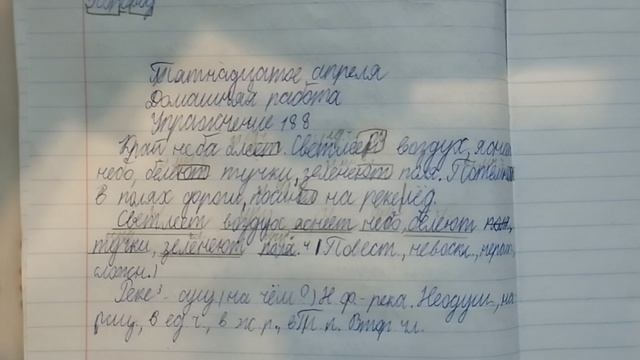 Пятнадцатое апреля
Домашняя работа
Упражнение 188
Край неба алеет. Светлеет воздух, яснеет
небо, белеют тучки, зеленеют поля. Потемнели
в полях дороги, посинел на реке лёд.
Светлеет воздух, яснеет небо, белеют
тучки, зеленеют поля.⁴ (Повест., невоскл.,
сложн.)
Реке³ - сущ. (на чём?) Н.ф.-река. Неодуш., нариц., в ед.ч., в ж.р., в П.п. Втор. чл.